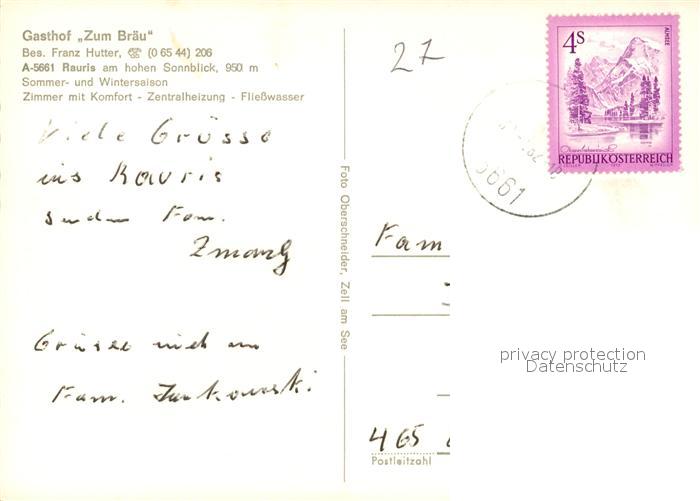 Gasthof „Zum Bräu“
Bes. Franz Hutter, ☎ (0 65 44) 206
A-5661 Rauris am hohen Sonnblick, 950 m
Sommer- und Wintersaison
Zimmer mit Komfort - Zentralheizung - Fließwasser
27
4S
ALMSEE
REPUBLIK ÖSTERREICH
5661
Viele Grüsse
aus Rauris
senden Fam.
Grüsse auch an
Fam.
Foto Oberschneider, Zell am See
Fam
465
Postleitzahl
privacy protection
Datenschutz